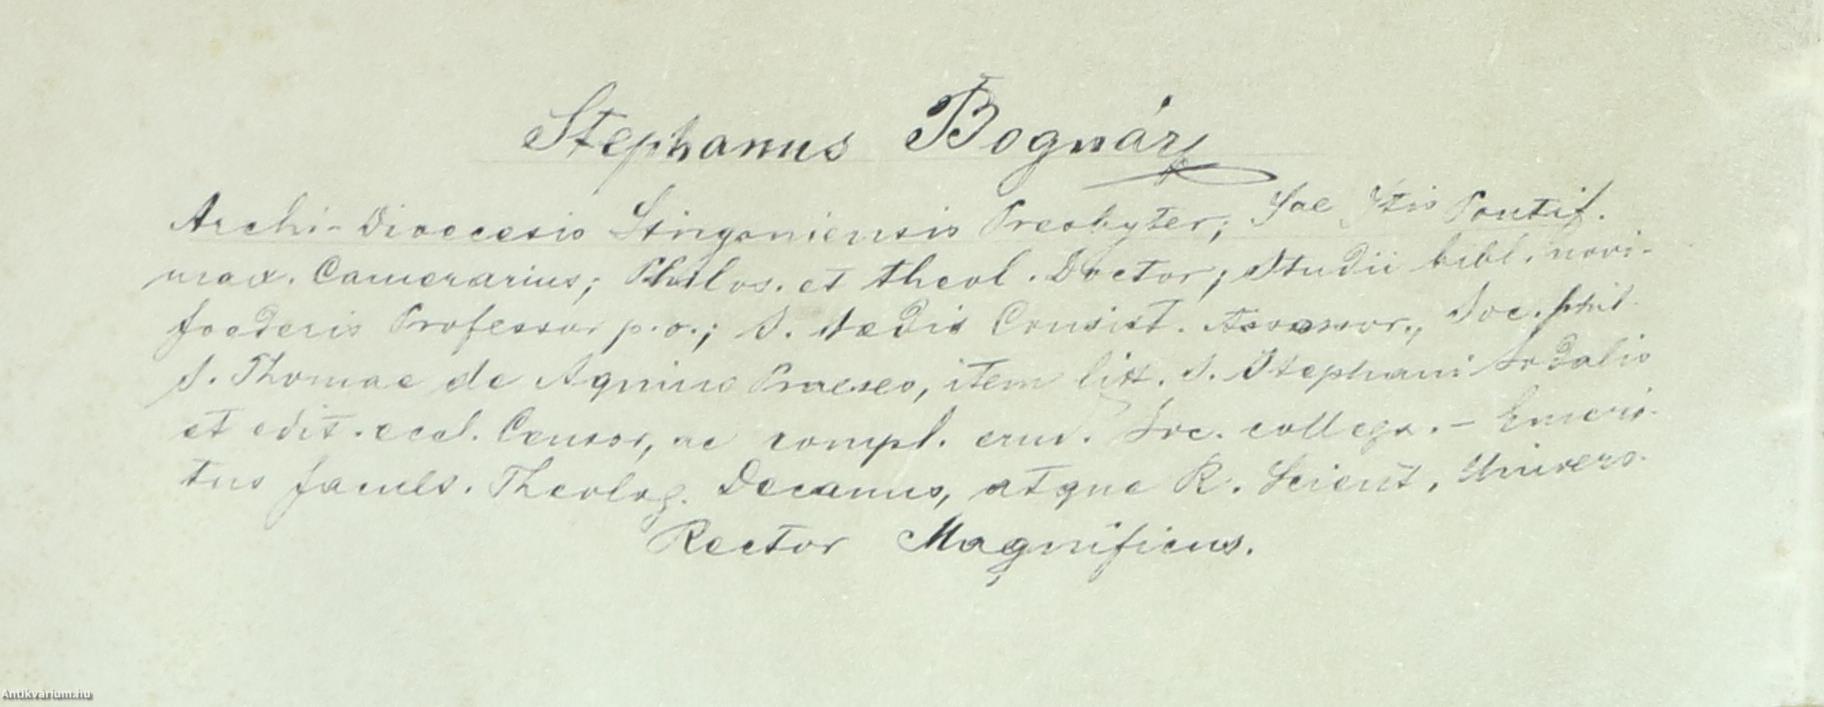 Stephanus Bognár
Archi-Dioecesis Strigoniensis Presbyter; Sae Stis Pontif.
max. Camerarius; Philos. et theol. Doctor; Studii bibl. novi-
foederis Professor p.o.; S. Sedis Consist. Assessor., Soc. phil.
S. Thomae de Aquino Praeses, item litt. S. Stephani Sodalis
et edit. eccl. Censor, ac compl. erud. Soc. collega. – Emeri-
tus facult. Theolog. Decanus, atque R. Scient. Univers.
Rector Magnificus.
Antikvarium.hu